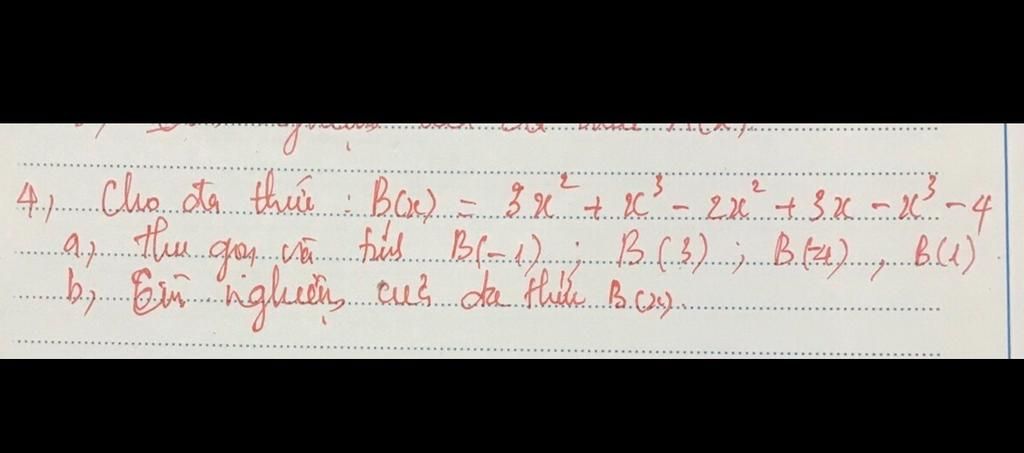 4, Cho đa thức : B(x) = 3x² + x³ - 2x² + 3x - x³ - 4
a, thu gọn và tính B(-1) ; B(3) ; B(-4) , B(1)
b, Tìm nghiệm của đa thức B(x).